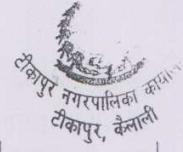 टीकापुर नगरपालिका कार्या
टीकापुर, कैलाली